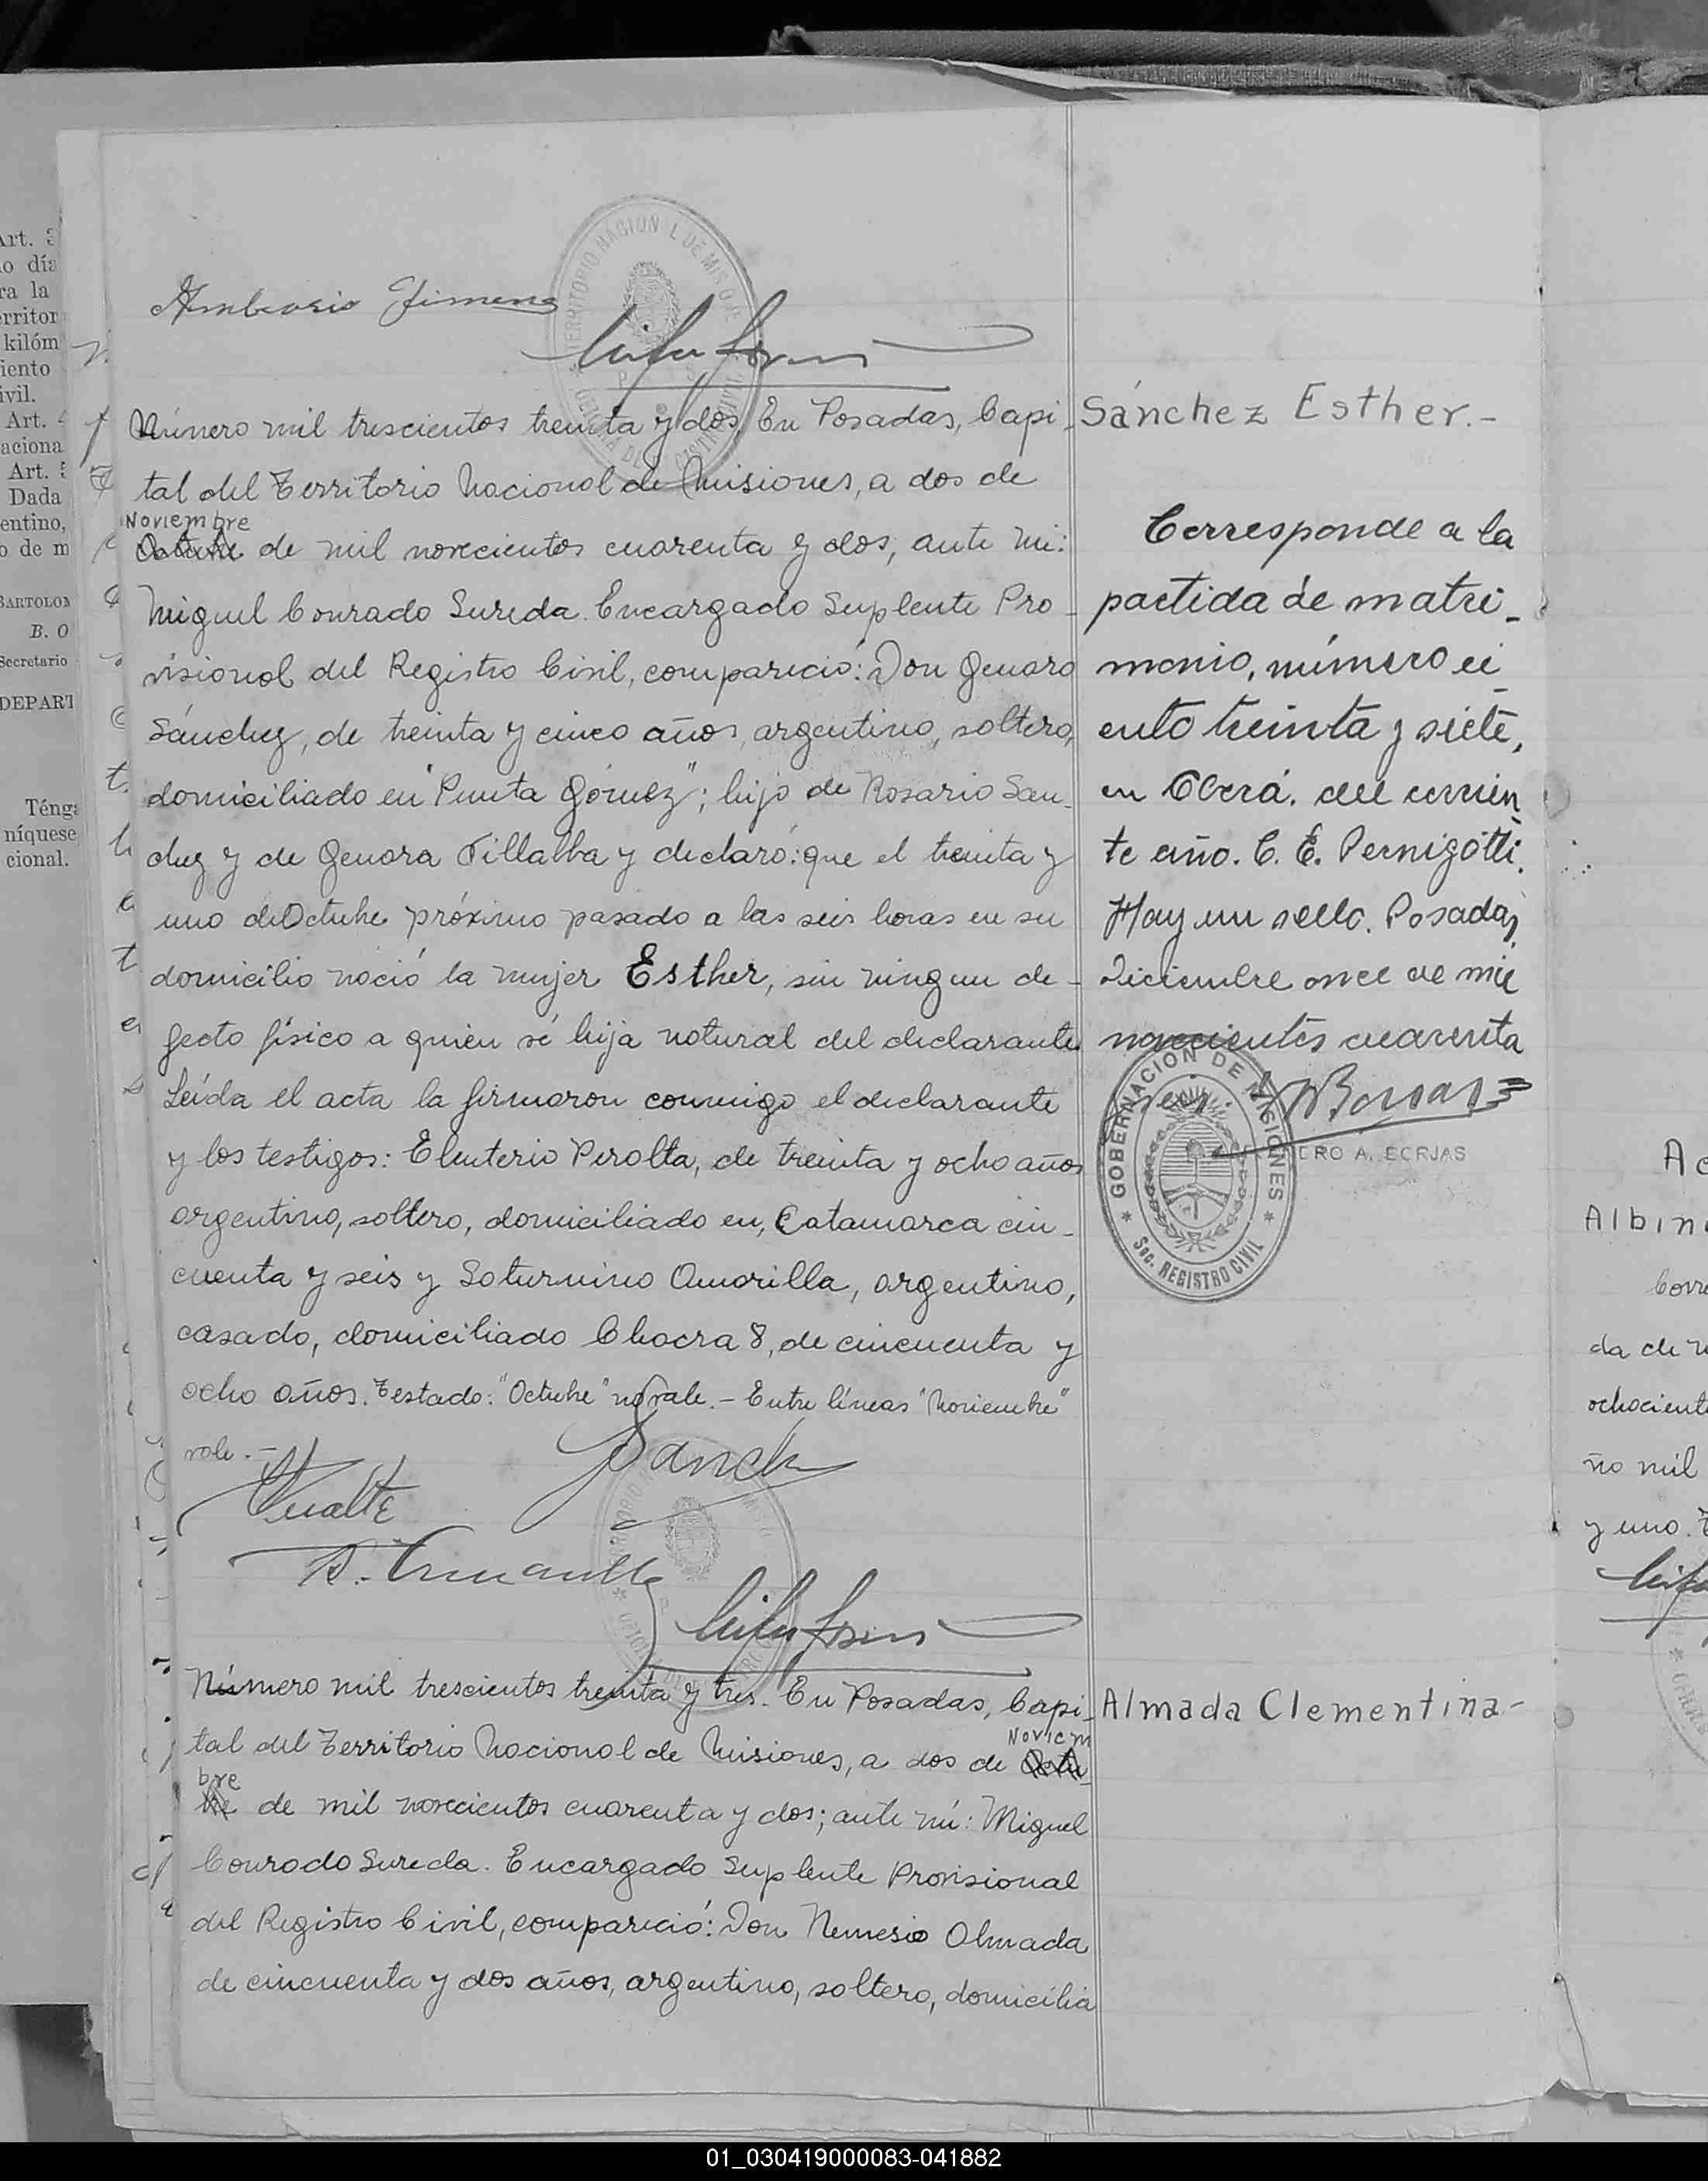 Art. 3
o día
ra la
erritor
kilóm
iento
ivil.
Art. 4
aciona
Art. 5
Dada
entino,
o de m
BARTOLOM
B. O
Secretario
DEPART
Ténga
níquese
cional.
Ambrosio Jimenez
Número mil trescientos treinta y dos. En Posadas, Capi-
tal del Territorio Nacional de Misiones, a dos de
Noviembre
Octubre de mil novecientos cuarenta y dos, ante mi:
Miguel Conrado Sureda. Encargado Suplente Pro-
visional del Registro Civil, compareció: Don Genaro
Sánchez, de treinta y cinco años, argentino, soltero,
domiciliado en "Punta Gómez"; hijo de Rosario San-
chez y de Genara Villalba y declaró: que el treinta y
uno de Octubre próximo pasado a las seis horas en su
domicilio nació la mujer Esther, sin ningun de-
fecto físico a quien sé hija natural del declarante
Leída el acta la firmaron conmigo el declarante
y los testigos: Eleuterio Peralta, de treinta y ocho años
argentino, soltero, domiciliado en, Catamarca cin-
cuenta y seis y Saturnino Amarilla, argentino,
casado, domiciliado Chacra 8, de cincuenta y
ocho años. Testado: "Octubre" no vale.- Entre líneas "Noviembre"
vale.-
Sanch
Peralta
S. Amarilla
Número mil trescientos treinta y tres. En Posadas, Capi-
tal del Territorio Nacional de Misiones, a dos de Octu-
Noviem
bre
bre de mil novecientos cuarenta y dos; ante mí: Miguel
Conrado Sureda. Encargado Suplente Provisional
del Registro Civil, compareció: Don Nemesio Almada
de cincuenta y dos años, argentino, soltero, domicilia
Sánchez Esther.-
Corresponde a la
partida de matri-
monio, número ci
ento treinta y siete,
en Oberá. del corrien
te año. C. E. Pernigotti.
Hay un sello. Posadas,
Diciembre once de mil
novecientos cuarenta
GOBERNACION DE MISIONES
Sec. REGISTRO CIVIL
ERO A. BORJAS
Almada Clementina-
Albin
da de
ochocient
ño mil
y uno.
01_030419000083-041882